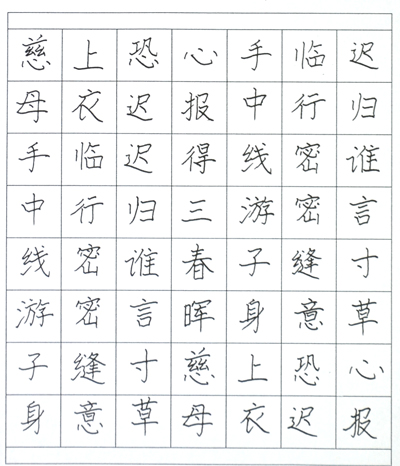 慈上恐心手临迟
母衣迟报中行归
手临迟得线密谁
中行归三游密言
线密谁春子缝寸
游密言晖身意草
子缝寸慈上恐心
身意草母衣迟报